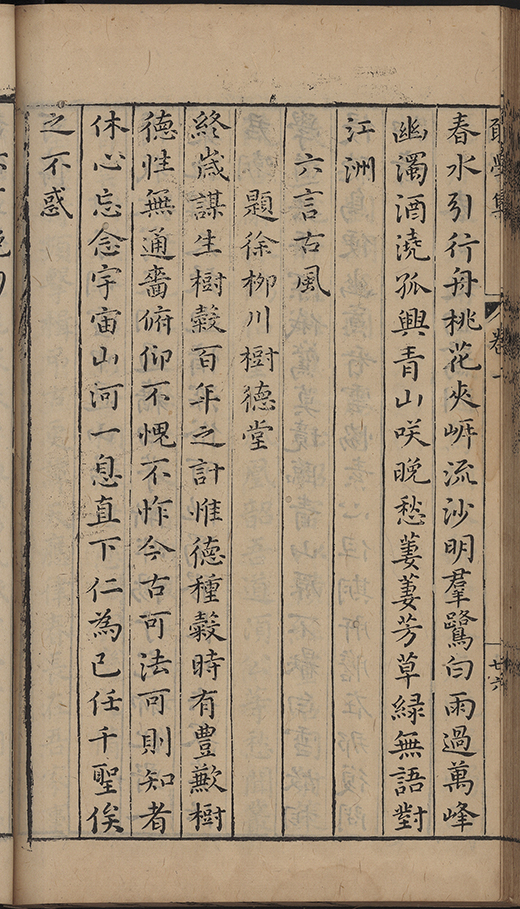 卷一
廿六
春水引行舟桃花夾㟁流沙明羣鷺白雨過萬峰
幽濁酒澆孤興青山咲晚愁萋萋芳草緑無語對
江洲
六言古風
題徐柳川樹德堂
終歲謀生樹穀百年之計惟德種穀時有豊歉樹
德性無通嗇俯仰不愧不怍今古可法可則知者
休心忘念宇宙山河一息直下仁為已任千聖俟
之不惑